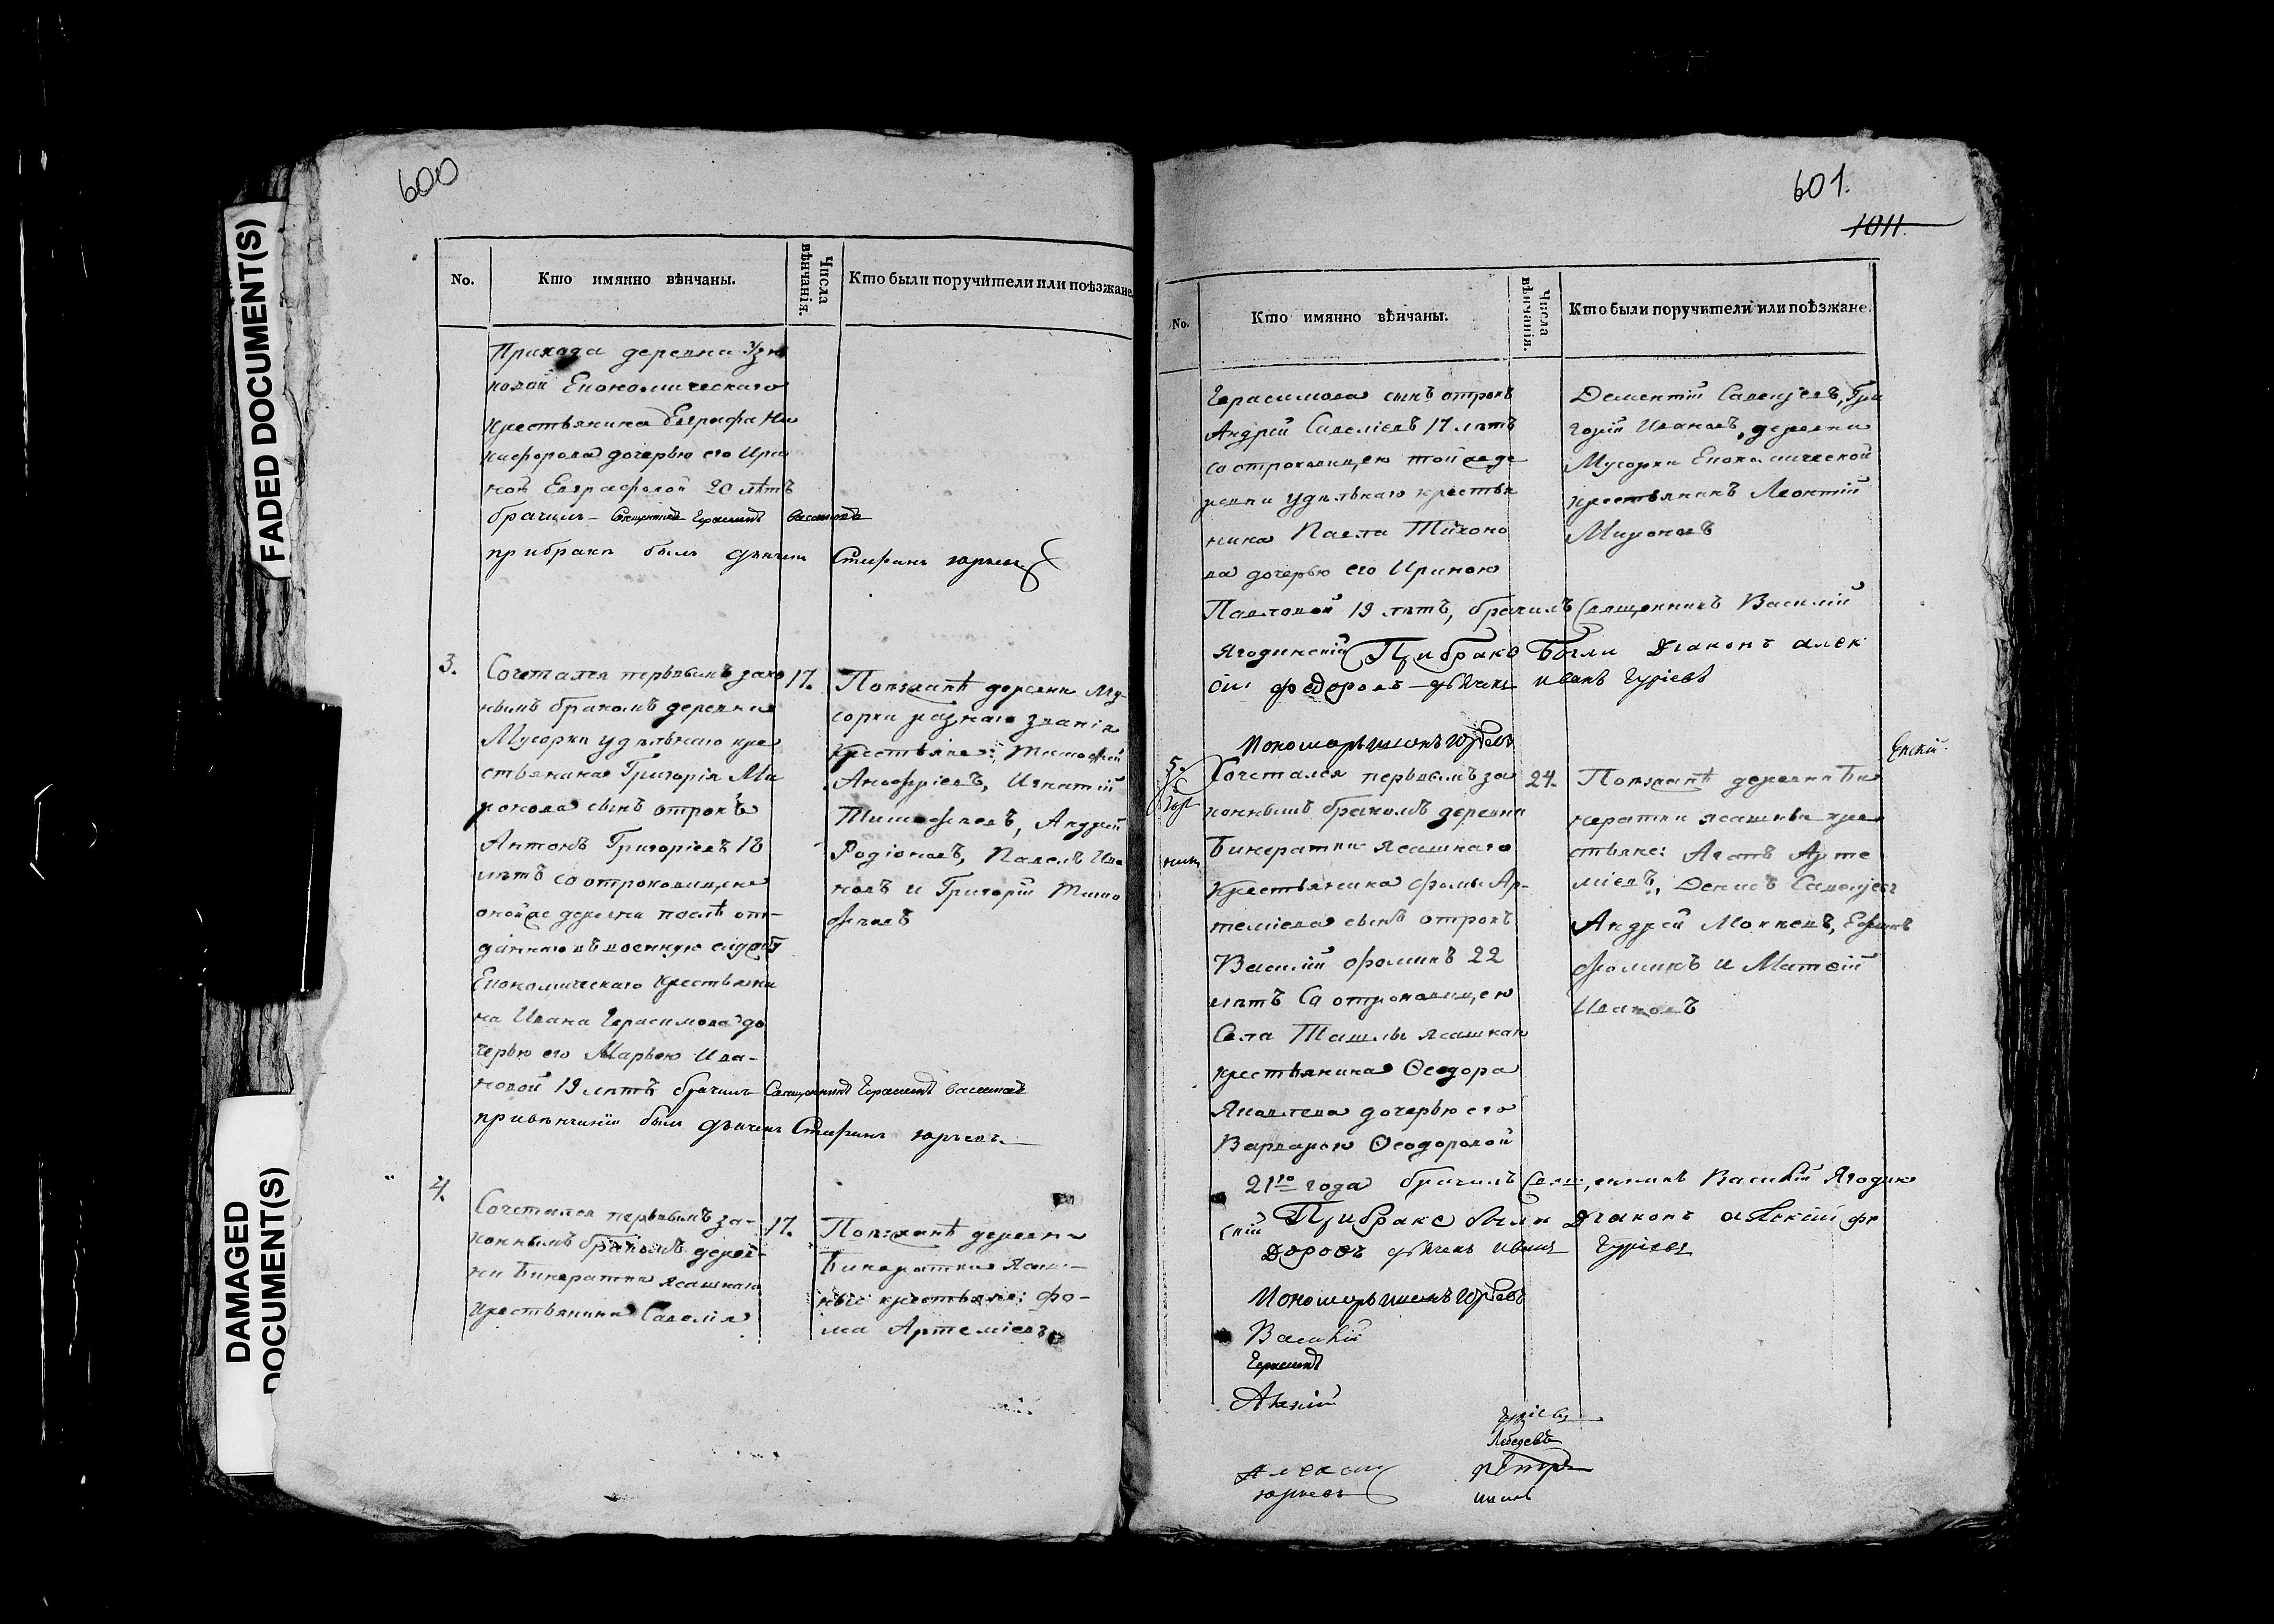 600
FADED DOCUMENT(S)
DAMAGED
DOCUMENT(S)
No.
Кто имянно вѣнчаны.
Числа
вѣнчанія.
Кто были поручители или поѣзжане.
Прихода деревни
Економическаго
крестьянина Евграфа Ни
кифорова дочерью его Ири
ной Евграфовой 20 лѣтъ
брачилъ Священникъ Герасимъ
при бракѣ былъ дьячекъ Стефанъ Юрьевъ
3.
Сочетался первымъ зако
ннымъ бракомъ деревни
Мусорки удѣльнаго кре
стьянина Григорія Ми
ронова сынъ отрокъ
Антонъ Григоріевъ 18
лѣтъ со отроковицею
оной же деревни послѣ от-
даннаго въ военную службу
Економическаго крестьяни
на Ивана Герасимова до
черью его Марьею Ива-
новой 19 лѣтъ брачилъ Священникъ Герасимъ
при вѣнчаніи былъ дьячекъ Стефанъ Юрьевъ
17.
Поѣзжанѣ деревни Му-
сорки разнаго званія
крестьяне: Тимофей
Анофріевъ, Игнатій
Тимофѣевъ, Андрей
Родіоновъ, Павелъ Ива
новъ и Григорій Тимо
фѣевъ
4.
Сочетался первымъ за-
коннымъ бракомъ дерев-
ни Бинератки ясашнаго
крестьянина Савелія
17.
Поѣзжанѣ деревни
Бинератки Ясаш-
ные крестьяне: Фо-
ма Артеміевъ
601.
1011.
No.
Кто имянно вѣнчаны.
Числа
вѣнчанія.
Кто были поручители или поѣзжане.
Герасимова сынъ отрокъ
Андрей Савеліевъ 17 лѣтъ
со отроковицею той же де
ревни удѣльнаго крестья
нина Павла Тихоно
ва дочерью его Ириною
Павловой 19 лѣтъ, брачилъ Священникъ Василій
Ягодинскій При браке Были Диаконъ алек
сѣй федоровъ дьячекъ иванъ Гуріевъ
Дементій Савельевъ, Гри
горій Ивановъ, деревни
Мусорки Економической
крестьянинъ Леонтій
Мироновъ
Пономарь
5.
Сочетался первымъ за
коннымъ бракомъ деревни
Бинератки ясашнаго
крестьянина Фомы Ар-
теміева сынъ отрокъ
Василій Фоминъ 22
лѣтъ Со отроковицею
Села Ташлы ясашнаго
крестьянина Ѳеодора
Яковлева дочерью его
Варварою Ѳеодоровой
21го года брачилъ Священникъ Василій Ягодин
скій При браке были Диаконъ алексій фе
доровъ дьячекъ иванъ Гуріевъ
24.
Поѣзжанѣ деревни Би
нератки ясашны кре
стьяне: Агапъ Арте
міевъ, Денисъ Савельевъ
Андрей Мокеевъ, Ефимъ
Фоминъ и Матвій
Ивановъ
Пономарь
Василій
Герасимъ
Гуріевъ
Лебедевъ
Петръ
Алексѣй
Юрьевъ